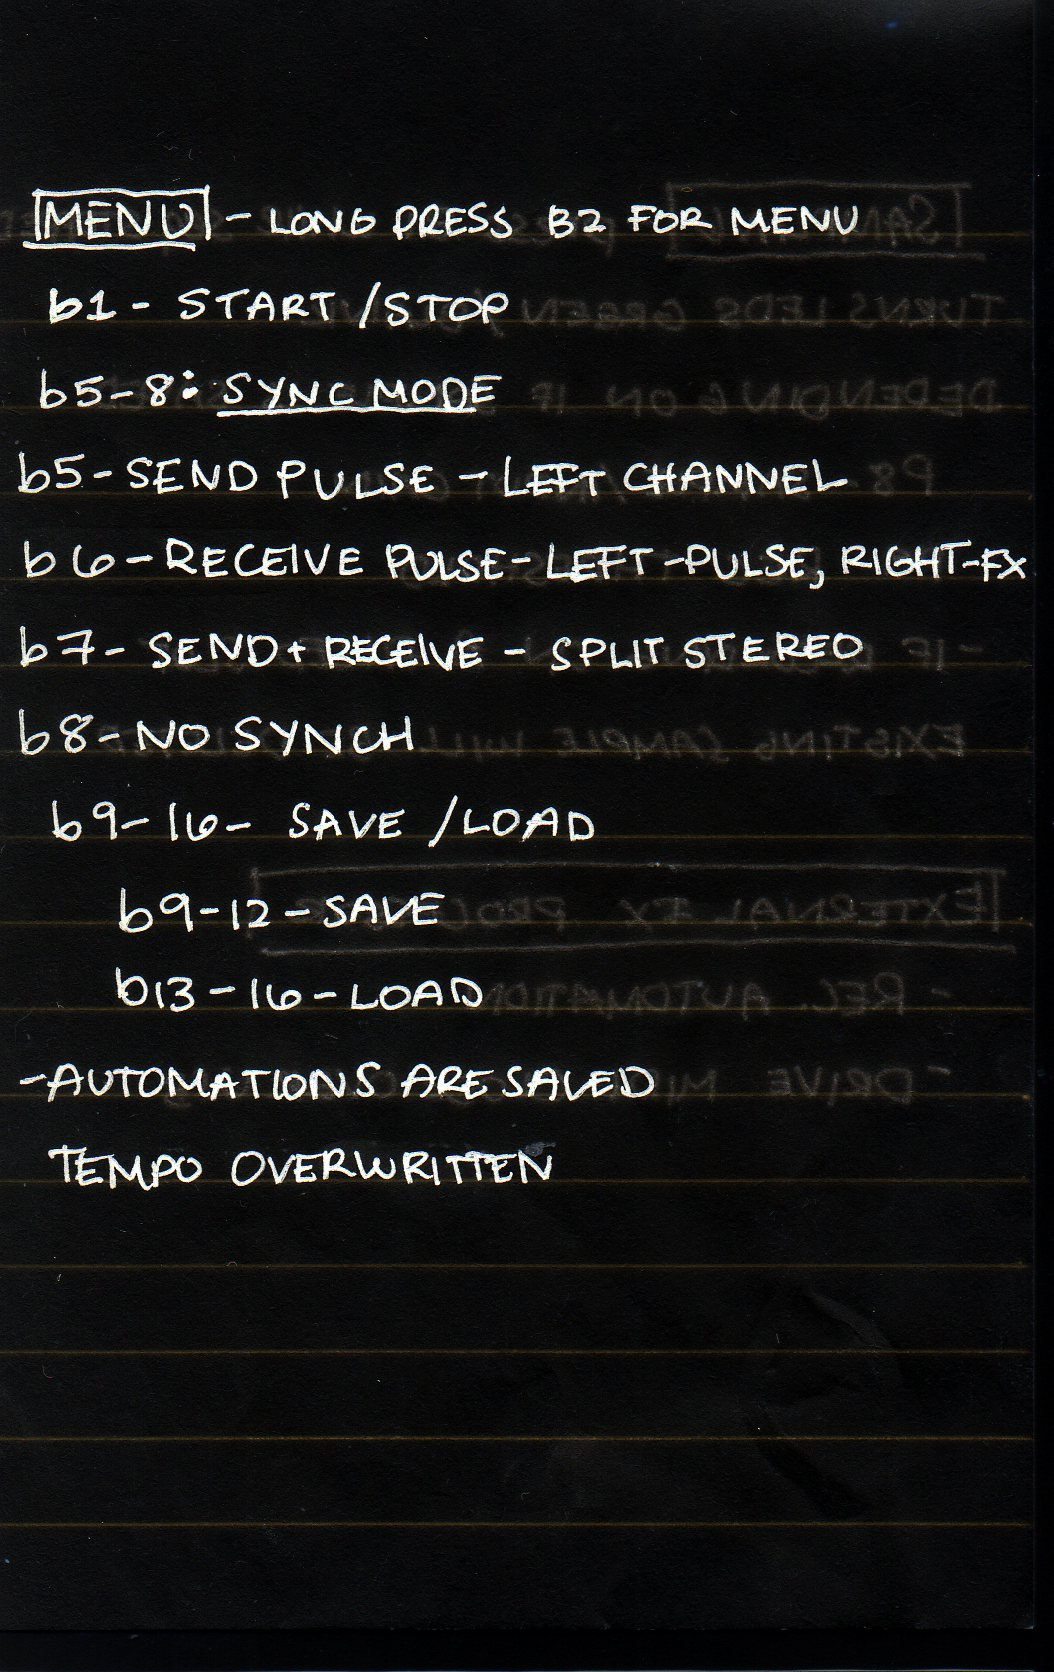 MENU - LONG PRESS B2 FOR MENU
b1 - START / STOP
b5-8: SYNC MODE
b5 - SEND PULSE - LEFT CHANNEL
b6 - RECEIVE PULSE - LEFT - PULSE, RIGHT - FX
b7 - SEND + RECEIVE - SPLIT STEREO
b8 - NO SYNCH
b9-16 - SAVE / LOAD
b9-12 - SAVE
b13-16 - LOAD
- AUTOMATIONS ARE SAVED
TEMPO OVERWRITTEN